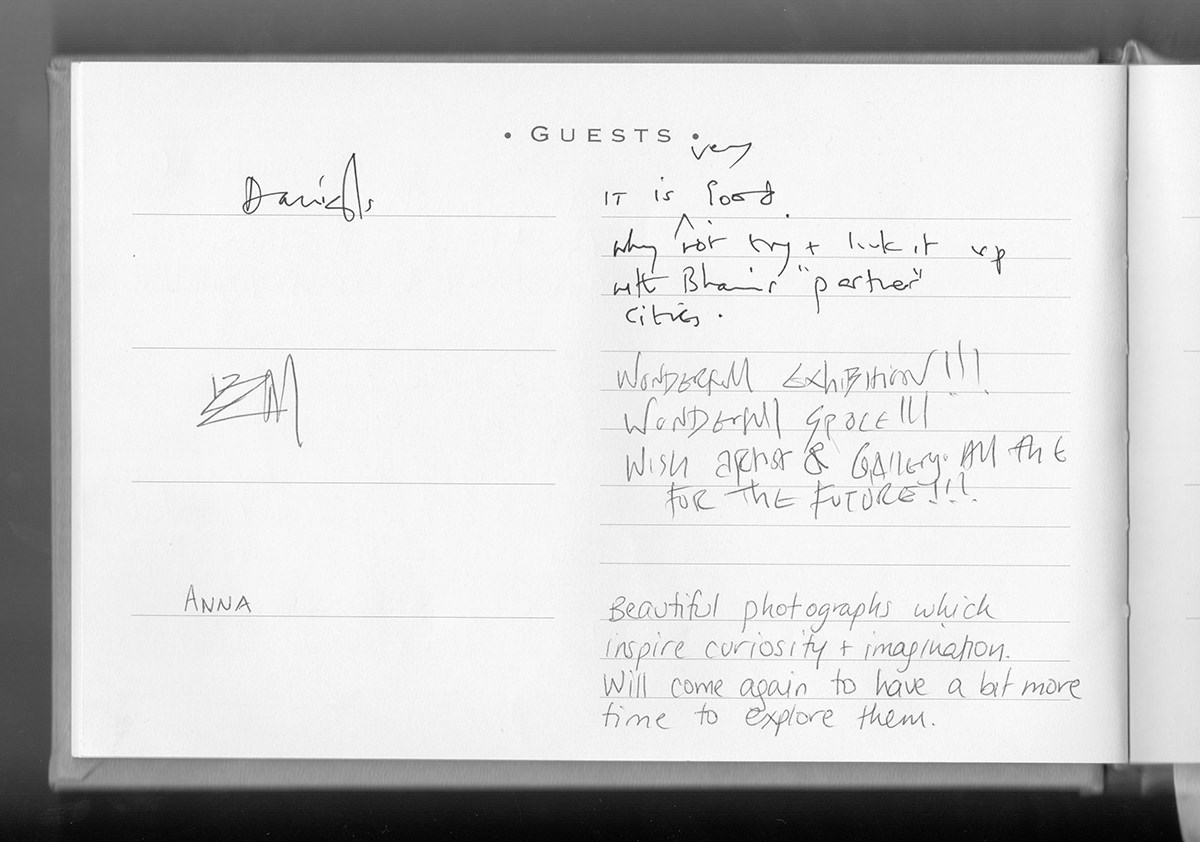 • GUESTS •
very
IT is good.
why not try + link it up
with Bham's "partner"
cities.
WONDERFUL EXHIBITION!!!
WONDERFUL SPACE!!!
WISH & GALLERY ALL THE
FOR THE FUTURE!!!
ANNA
Beautiful photographs which
inspire curiosity + imagination.
Will come again to have a bit more
time to explore them.